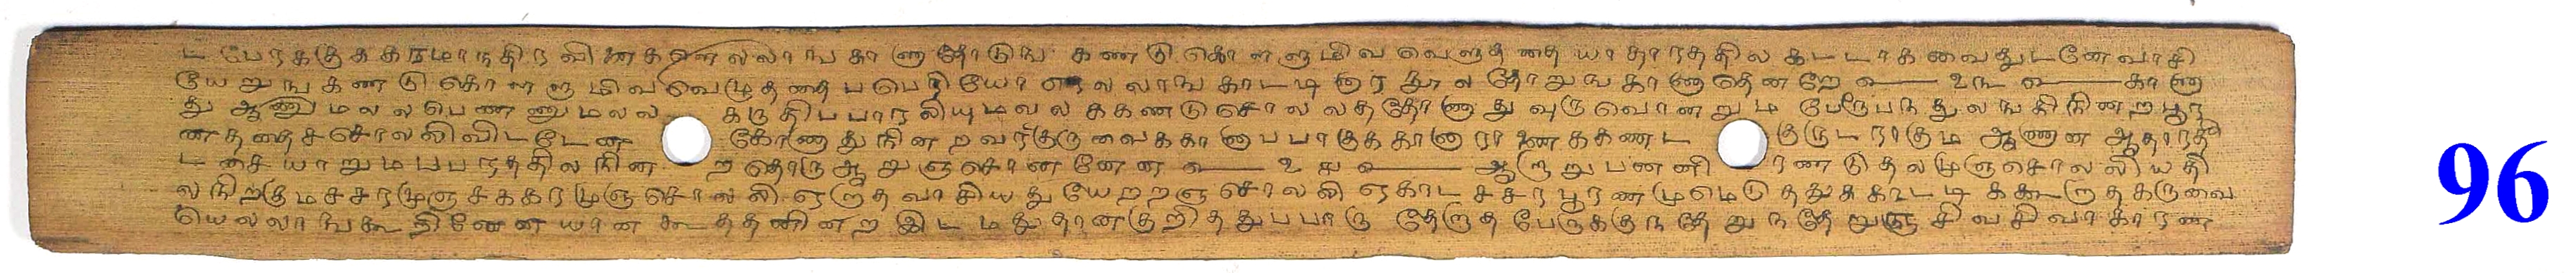 ட பேரககுககநமாநதிரவிணகளெலலாஙகாணுதோடுங கணடுகொளளுமிவவெளுதணையாதாரததில கடடாகவைதுடனேவாசி
யேறுஙகணடுகொளளுமிவவெழுதணைபபெரியோ எலலாஙகாடடிருரதூலதோறுஙகாணுதெனறே உ௩ காணு
து ஆணுமலலபெணணுமலல கருதிபபாரலியுமலலககணடுசொலலததோணுது வுருவொனறும பேருபநதுலஙகிநினறபூர
ணததைசசொலலிவிடடேன கோணுதுநினறவர்குருவைககானுபபாகுககானுரா கணட குருடராகும ஆணன ஆதாரதி
டசையாறுமபபநததிலநின றதொருஆறுஞசொனனேன உ ௪ ஆருறுபனனி ரணடுதலமுஞசொலலியதி
லநிறகுமசசரமுஞசககரமுஞசொலலி ஏறுதவாசியதுயேறறஞசொலலி ஏகாடசசரபூரணமுமெடுததுககாடடி ககூறுதகருவை
யெலலாஙகூறினேனயான கூததனினற இடமதுதானகுறிததுபபாரு தேருதபேருககுநதேறுநதேறுஞசிவசிவாகாரண
96